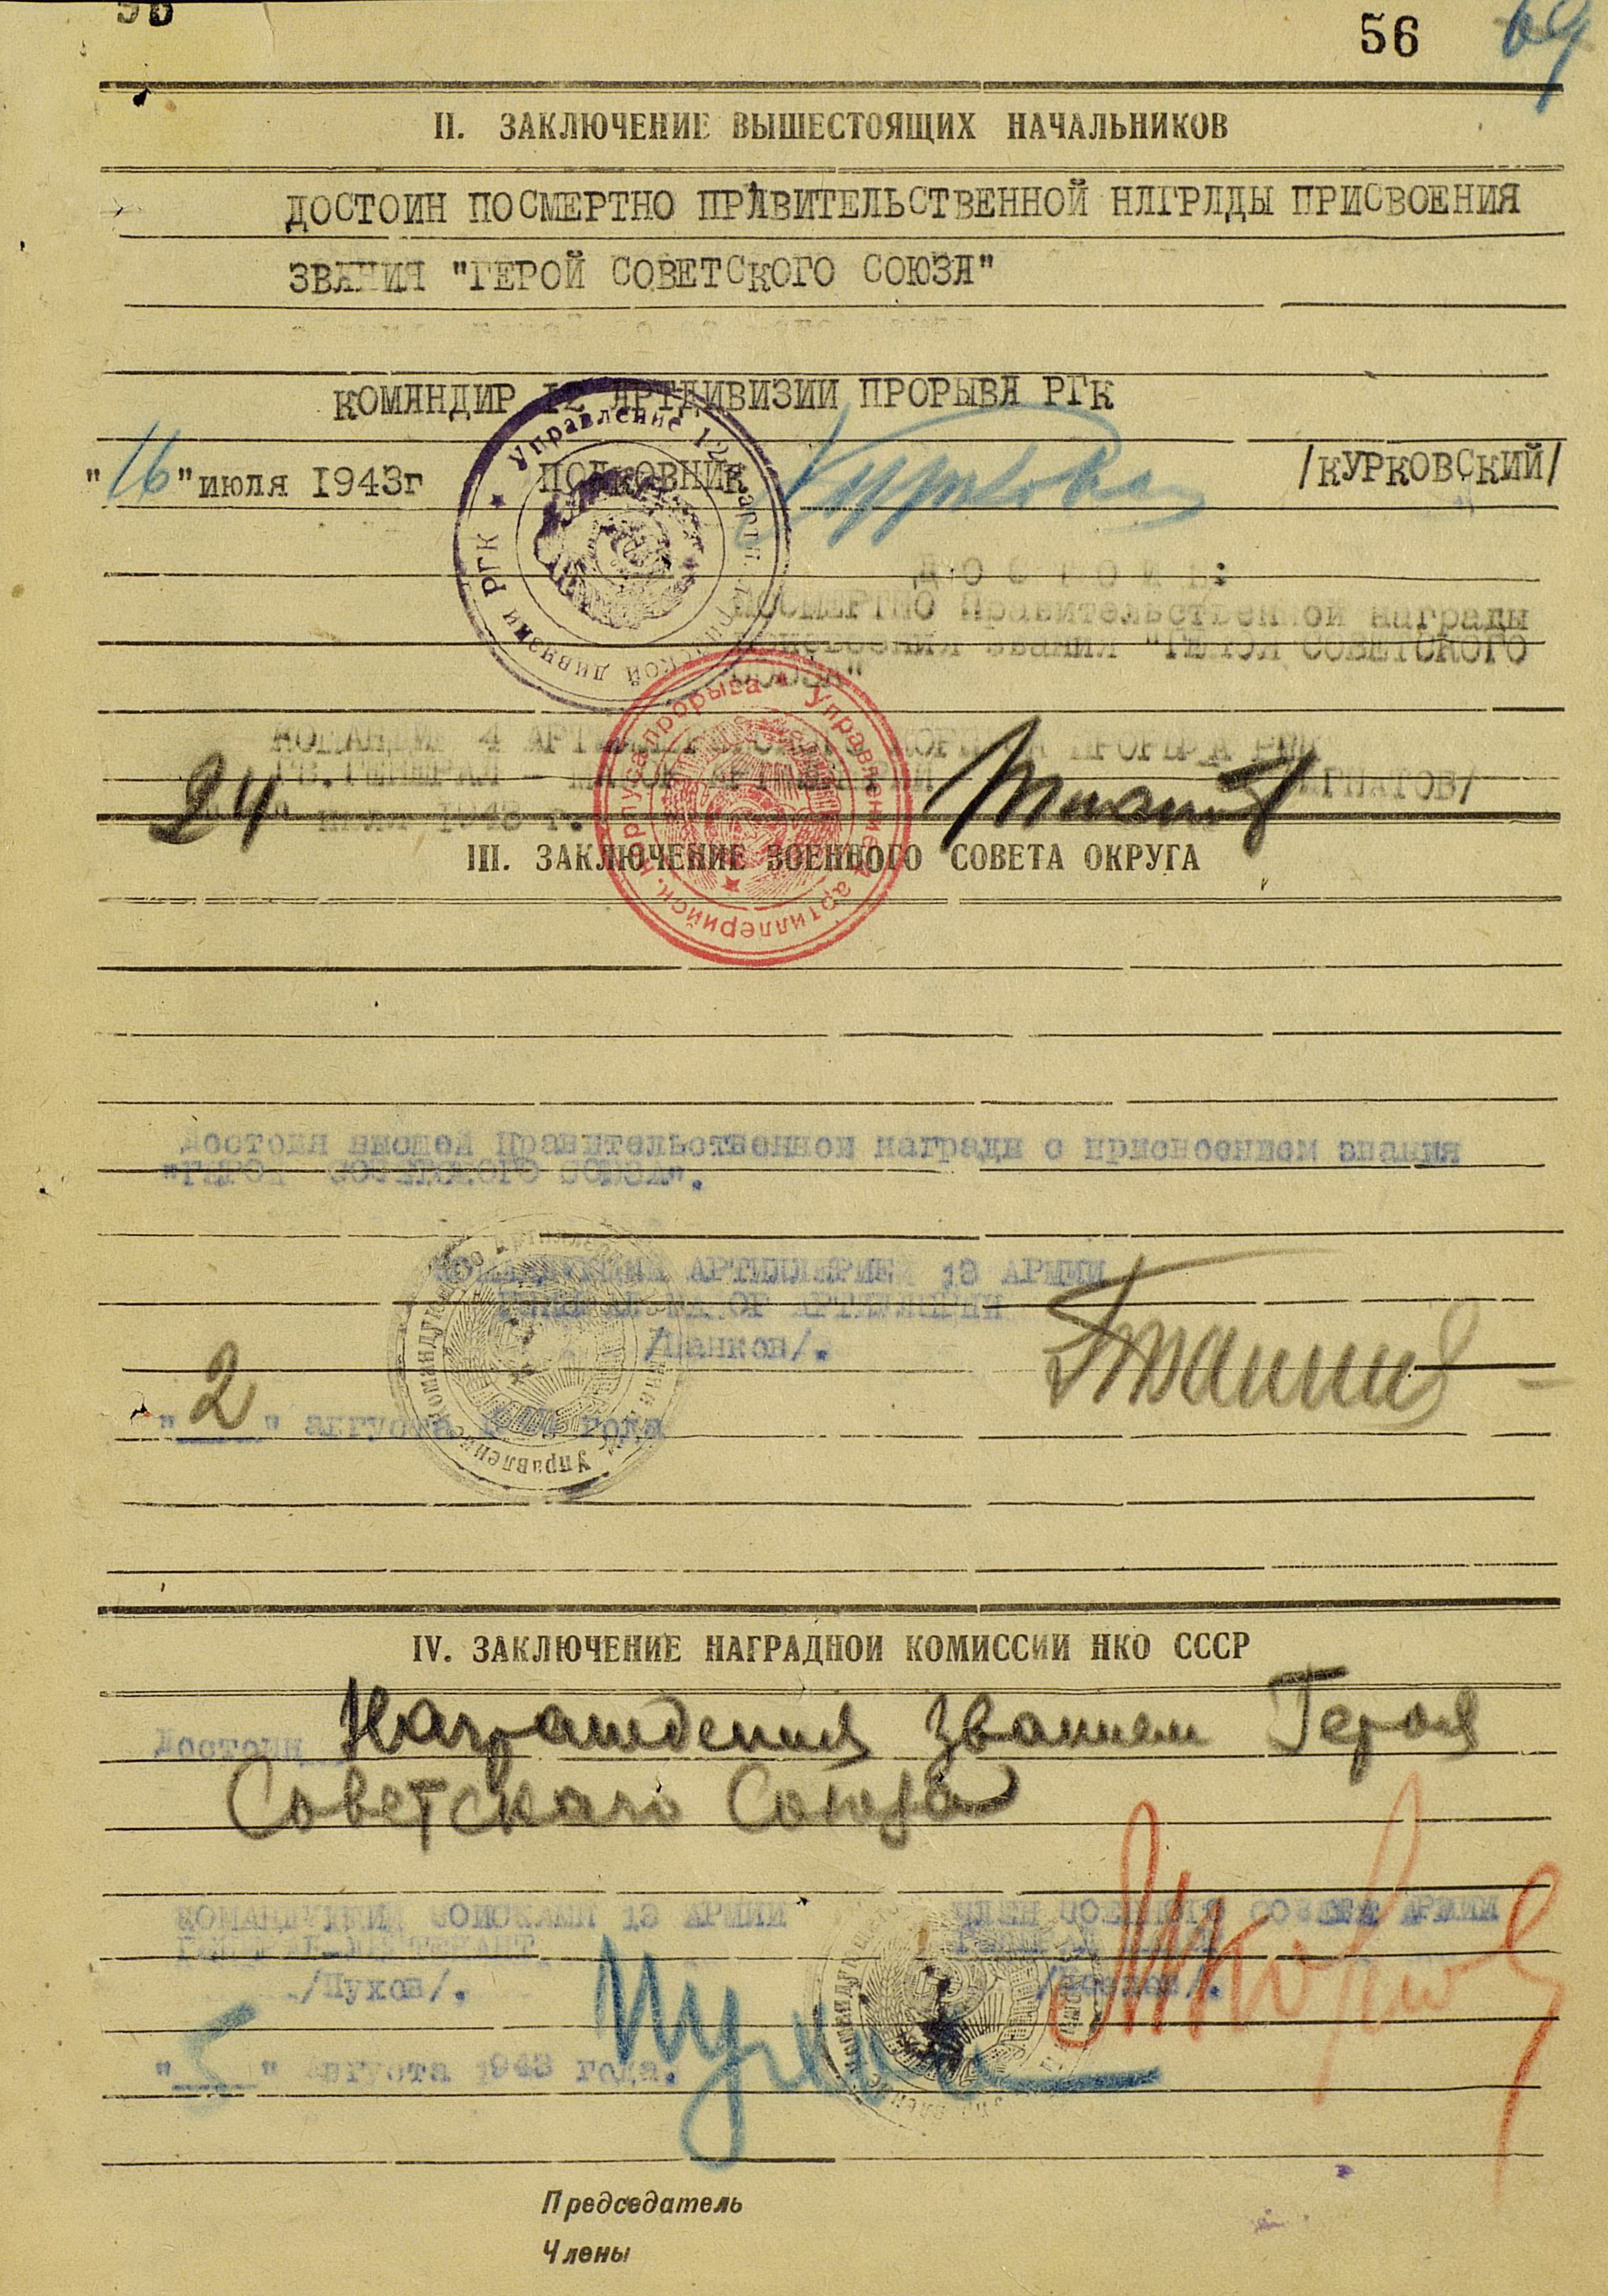 56 69
II. ЗАКЛЮЧЕНИЕ ВЫШЕСТОЯЩИХ НАЧАЛЬНИКОВ
ДОСТОИН ПОСМЕРТНО ПРАВИТЕЛЬСТВЕННОЙ НАГРАДЫ ПРИСВОЕНИЯ
ЗВАНИЯ "ГЕРОЙ СОВЕТСКОГО СОЮЗА"
КОМАНДИР 12 АРТДИВИЗИИ ПРОРЫВА РГК
"16" июля 1943г ПОЛКОВНИК /КУРКОВСКИЙ/
Управление 12 артиллерийской дивизии РГК
ДОСТОИН:
ПОСМЕРТНО Правительственной награды
присвоения звания "ГЕРОЯ СОВЕТСКОГО
СОЮЗА"
КОМАНДИР 4 АРТИЛЛЕРИЙСКОГО КОРПУСА ПРОРЫВА РГК
ГВ.ГЕНЕРАЛ - МАЙОР АРТИЛЛЕРИИ /ИГНАТОВ/
"24" июля 1943 г.
Управление артиллерийск. корпуса прорыва
III. ЗАКЛЮЧЕНИЕ ВОЕННОГО СОВЕТА ОКРУГА
Достоин высшей Правительственной награды с присвоением звания
"ГЕРОЙ СОВЕТСКОГО СОЮЗА".
КОМАНДУЮЩИЙ АРТИЛЛЕРИЕЙ 13 АРМИИ
ГЕНЕРАЛ-МАЙОР АРТИЛЛЕРИИ
"2" августа года
IV. ЗАКЛЮЧЕНИЕ НАГРАДНОЙ КОМИССИИ НКО СССР
Достоин Награждения званием Героя
Советского Союза
КОМАНДУЮЩИЙ ВОЙСКАМИ 13 АРМИИ ЧЛЕН ВОЕННОГО СОВЕТА АРМИИ
ГЕНЕРАЛ-ЛЕЙТЕНАНТ
/Пухов/. /Козлов/.
"5" Августа 1943 года.
Председатель
Члены